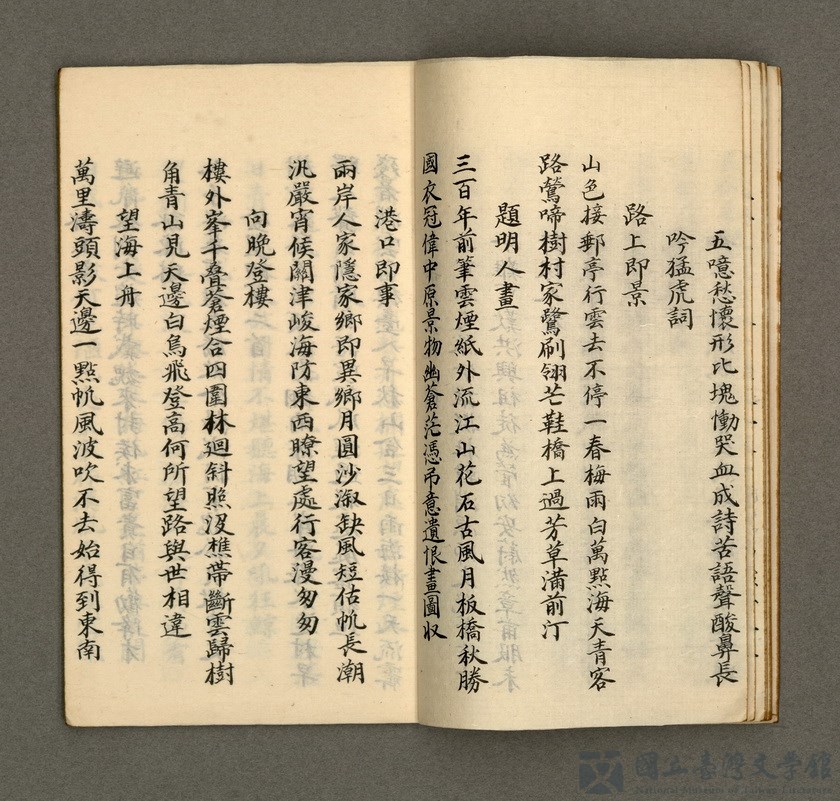 五噫愁懷形比塊慟哭血成詩苦語聲酸鼻長
吟猛虎詞
路上即景
山色接郵亭行雲去不停一春梅雨白萬點海天青客
路鶯啼樹村家鷺刷翎芒鞋橋上過芳草滿前汀
題明人畫
三百年前筆雲煙紙外流江山花石古風月板橋秋勝
國衣冠偉中原景物幽蒼茫憑吊意遺恨畫圖収
港口即事
兩岸人家隱家鄉即異鄉月圓沙溆缺風短估帆長潮
汎嚴宵候關津峻海防東西瞭望處行客漫匆匆
向晚登樓
樓外峯千叠蒼煙合四圍林迴斜照沒樵帶斷雲歸樹
角青山見天邊白鳥飛登高何所望路與世相違
望海上舟
萬里濤頭影天邊一點帆風波吹不去始得到東南
國立臺灣文學館
National Museum of Taiwan Literature